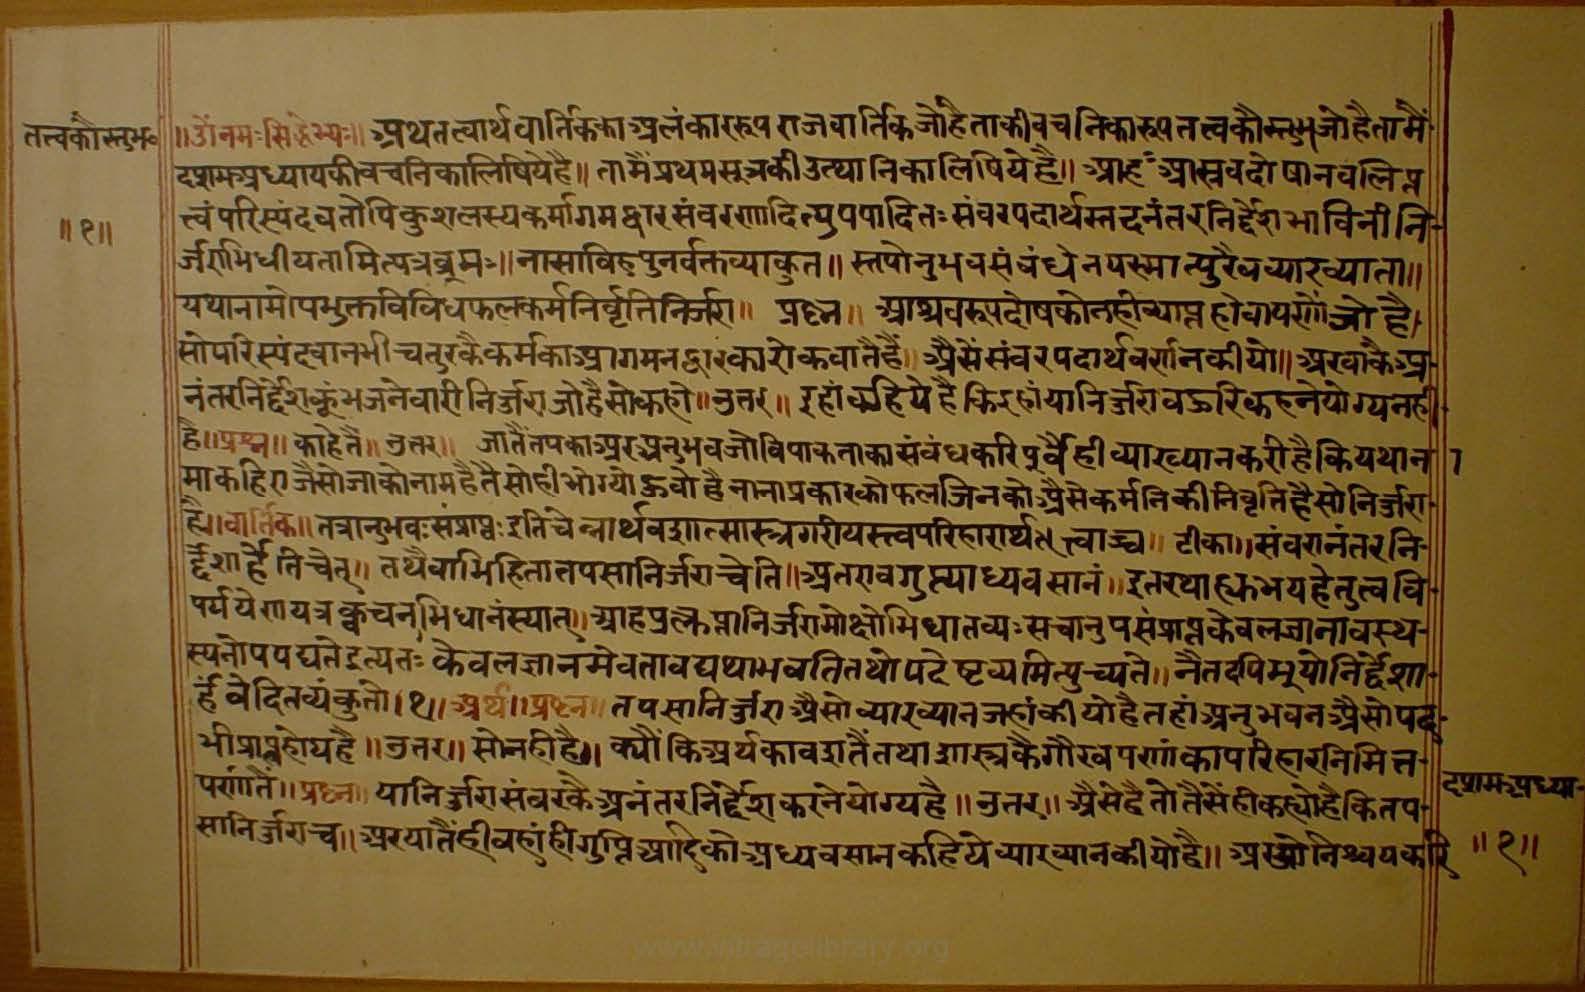 तत्वकौस्तुभ॰
॥१॥
॥ओंनमःसिद्धेभ्यः॥ अथतत्वार्थवार्तिकका अलंकाररूप राजवार्तिक जोहैताकीवचनिकारूपतत्वकौस्तुभजोहैतामैं
दशमअध्यायकीवचनिकालिषियेहै॥ तामैंप्रथमसूत्रकीउत्थानिकालिषियेहै॥ आह आस्रवदोषानवलिप्त
त्त्वंपरिस्पंदवतोपिकुशलस्यकर्मागमद्वारसंवरणादित्युपपादितः संवरपदार्थस्तदनंतरनिर्द्देशभाविनीनि
र्जराभिधीयतामित्यत्रब्रूमः॥नासाविहपुनर्वक्तव्याकुत॥ स्तपोनुभवसंबंधेनयस्मात्पुरैवव्याख्याता॥
यथानामोपभुक्तविविधफलकर्मनिर्वृत्तिनिर्जरा॥ प्रश्न॥ आश्रवरूपदोषकोनहीव्याप्तहोवायरणोंजोहै।
सोपरिस्पंदवानभीचतुरकैकर्मकाआगमनद्वारकारोकवातैहैं॥ अैसैंसंवरपदार्थवर्णनकीयो॥ अरवाकैअ
नंतरनिर्द्देशकूंभजनेवारीनिर्जराजोहैसोकहो॥ उत्तर॥ इहांकहियेहैकिइहांयानिर्जरावऊरिकहनेयोग्यनही
है॥प्रश्न॥ काहेतैं॥ उत्तर॥ जातैंतपकाअरअनुभवजोविपाकताकासंबंधकरिपूर्वैहीव्याख्यानकरीहैकियथाना
माकहिराजैसोजाकोनामहैतैसोहीभोग्योऊवोहैनानाप्रकारकोफलजिनकोअैसेकर्मनिकीनिवृत्तिहैसोनिर्जरा
है॥वार्तिक॥ तत्रानुभवःसंप्राप्तः इतिचेन्नार्थवशात्सास्त्रगरीयस्त्वपरिहारार्थत्त्वाच्च॥ टीका॥ संवरानंतरनि
र्द्देशार्हेतिचेत्॥ तथैवाभिहितातपसानिर्जराचेति॥ अतरावगुप्त्याध्यवसानं॥ इतरथाह्युभयहेतुत्ववि
पर्ययेणयत्रक्वचनभिधानंस्यात्॥ आहप्रत्क्लप्तानिर्जरामोक्षोभिधातव्यः सचानुपसंप्राप्तकेवलज्ञानावस्थ
स्यनोपपद्यतेइत्यतः केवलज्ञानमेवतावद्यथाभवतितथोपदेष्टव्यमित्युच्यते॥ नैतदपिभूयोनिर्द्देशा
र्हंवेदितव्यंकुतो।१॥ अर्थ॥प्रश्न॥ तपसानिर्जराअैसोव्याख्यानजहांकीयोहैतहांअनुभवनअैसोपद
भीप्राप्तहोयहै॥ उत्तर॥ सोनहीहै॥ क्यौंकिअर्थकावशतैंतथाशास्त्रकैगौरवपणांकापरिहारनिमित्त
पर्णातैं॥प्रश्न॥ यानिर्जरासंवरकैअनंतरनिर्द्देशकरनेयोग्यहै॥ उत्तर॥ अैसेहैतोतैसेंहीकह्योहैकितप
सानिर्जराच॥ अरयातैंहीवहांहीगुप्तिआदिकोअध्यवसानकहियेव्याख्यानकीयोहै॥ अरसोनिश्चयकरि
दशमअध्या
॥१॥
www.vitragelibrary.org